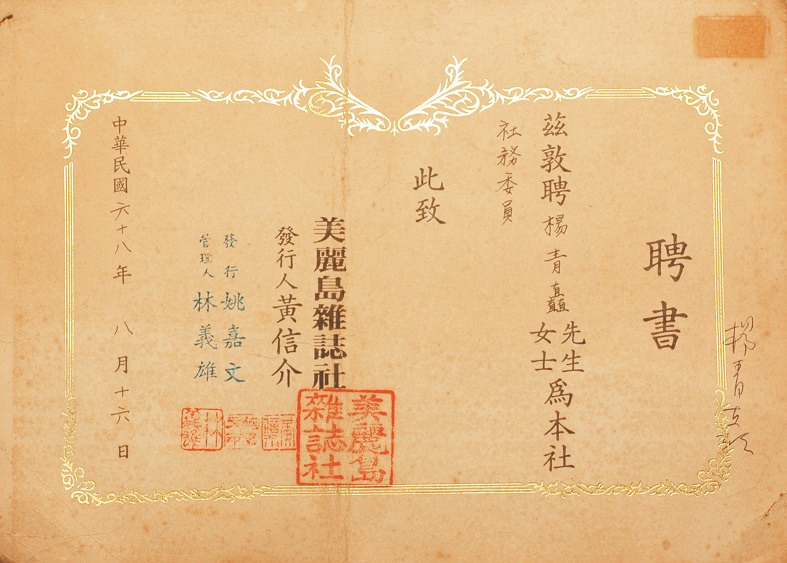 聘書
茲敦聘楊青矗先生女士為本社
社務委員
此致
美麗島雜誌社
發行人黃信介
發行管理人
姚嘉文
林義雄
中華民國六十八年八月十六日
美麗島雜誌社
楊青矗